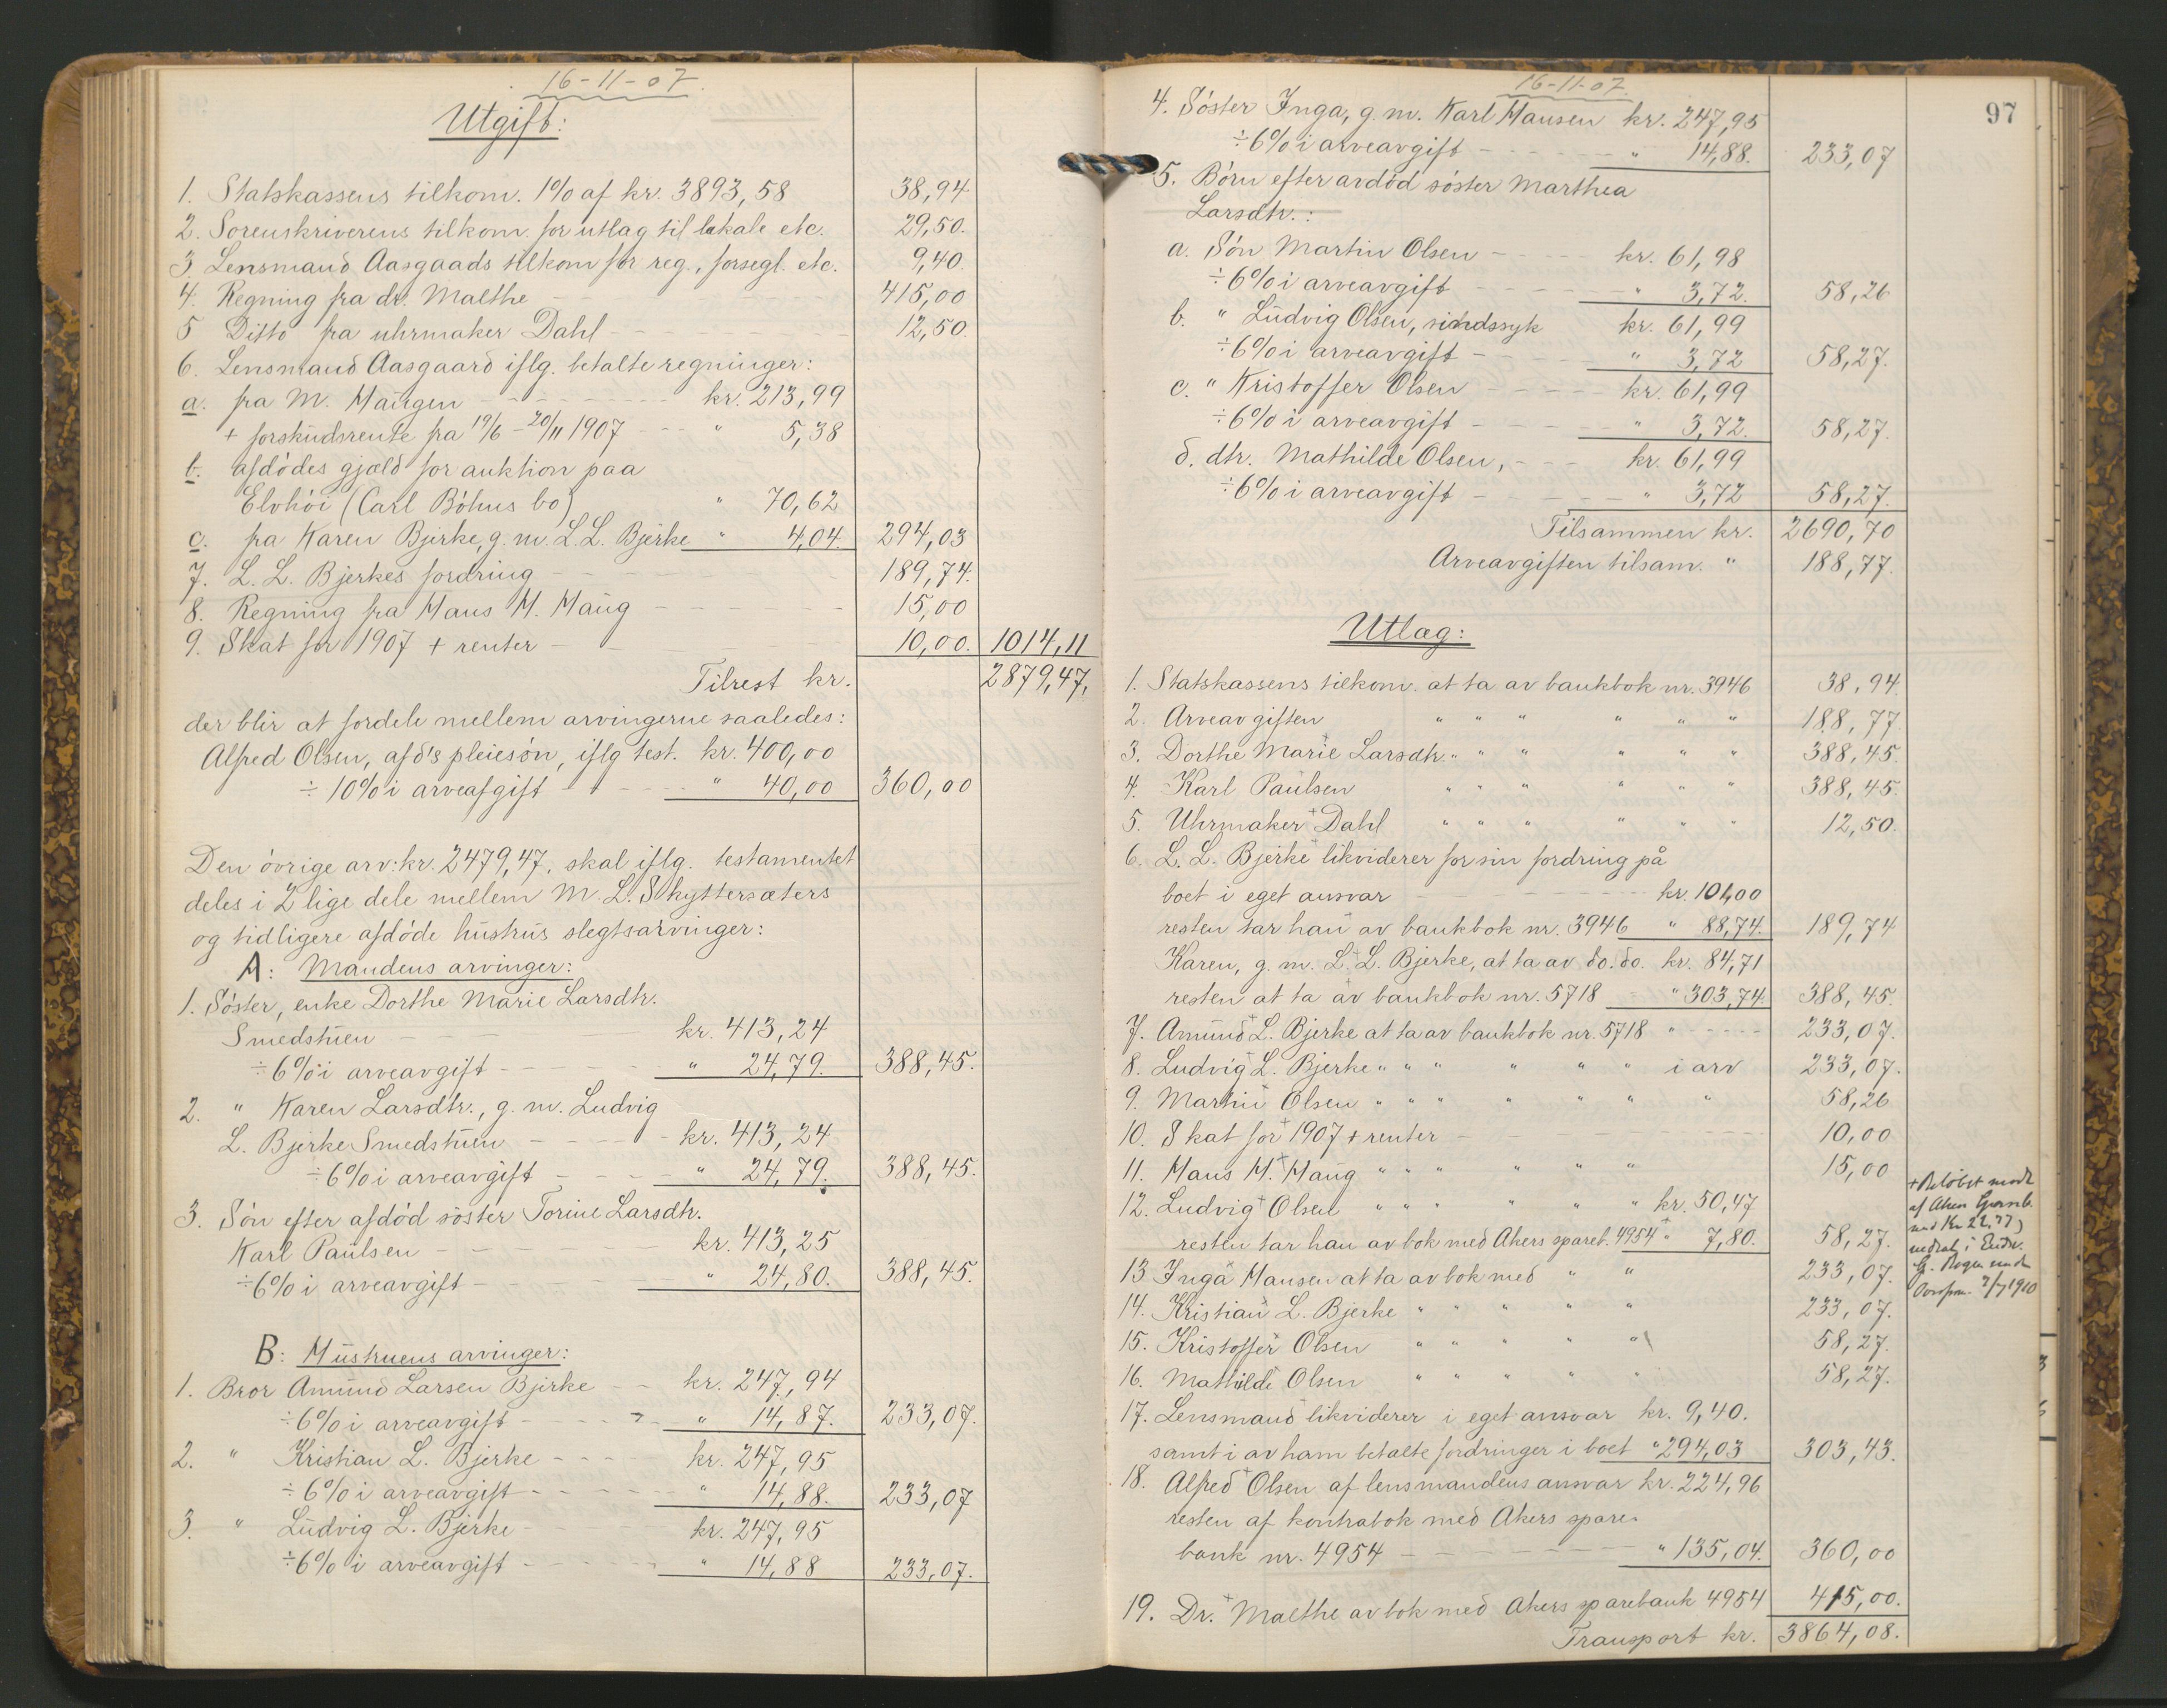 16-11-07.
Utgift:
1. Statskassens tilkom. 1% af kr. 3893,58 38,94
2. Sorenskriverens tilkom. for utlag til lokale etc. 29,50.
3. Lensmand Aasgaards tilkom for reg., forsegl. etc. 9,40.
4. Regning fra dr. Malthe 415,00
5 Ditto fra uhrmaker Dahl 12,50.
6. Lensmand Aasgaard iflg. betalte regninger:
a. fra M. Haugen kr. 213,99
+ forskudsrente fra 19/6 - 20/11 1907 " 5,38
b. afdödes gjæld for auktion paa
Elvhöi (Carl Böhns bo) " 70,62
c. fra Karen Bjerke, g. m. L. L. Bjerke " 4,04. 294,03
7. L. L. Bjerkes fordring 189,74.
8. Regning fra Hans H. Haug 15,00
9. Skat for 1907 + renter 10,00. 1014,11
Tilrest kr. 2879,47.
der blir at fordele mellem arvingerne saaledes:
Alfred Olsen, afd's pleiesön, iflg test. kr. 400,00
÷ 10% i arveafgift " 40,00 360,00
Den övrige arv: kr. 2479,47. skal iflg. testamentet
deles i 2 lige dele mellem M. L. Skyttersæters
og tidligere afdöde hustrus slegtsarvinger:
A: Mandens arvinger:
1. Söster, enke Dorthe Marie Larsdtr.
Smedstuen kr. 413,24
÷ 6% i arveavgift " 24,79. 388,45.
2. " Karen Larsdtr., g. m. Ludvig
L. Bjerke Smedstuen kr. 413,24
÷ 6% i arveavgift " 24,79. 388,45.
3. Sön efter afdöd söster Torine Larsdtr.
Karl Paulsen kr. 413,25
÷ 6% i arveavgift " 24,80. 388,45.
B: Hustruens arvinger:
1. Bror Amund Larsen Bjerke kr. 247,94
÷ 6% i arveavgift " 14,87. 233,07.
2. " Kristian L. Bjerke kr. 247,95
÷ 6% i arveavgift " 14,88. 233,07
3. " Ludvig L. Bjerke kr. 247,95
÷ 6% i arveavgift " 14,88 233,07.
16-11-07.
97
4. Söster Inga, g. m. Karl Hansen kr. 247,95
÷ 6% i arveavgift " 14,88. 233,07
5. Börn efter avdöd söster Marthea
Larsdtr.:
a. Sön Martin Olsen kr. 61,98
÷ 6% i arveavgift " 3,72. 58,26
b. " Ludvig Olsen, sindssyk kr. 61,99
÷ 6% i arveavgift " 3,72 58,27.
c. " Kristoffer Olsen kr. 61,99
÷ 6% i arveavgift " 3,72. 58,27.
d. dtr. Mathilde Olsen, kr. 61,99
÷ 6% i arveavgift " 3,72 58,27.
Tilsammen kr. 2690,70
Arveavgiften tilsam. " 188,77.
Utlæg:
1. Statskassens tilkom. at ta av bankbok nr. 3946 38,94.
2. Arveavgiften " " " " " " 188,77
3. Dorthe Marie Larsdtr. " " " " " " 388,45.
4. Karl Paulsen " " " " " " 388,45.
5. Uhrmaker Dahl " " " " " " 12,50.
6. L. L. Bjerke likviderer for sin fordring på
boet i eget ansvar kr. 101,00
resten tar han av bankbok nr. 3946 " 88,74. 189,74
Karen, g. m. L. L. Bjerke, at ta av do. do. kr. 84,71
resten at ta av bankbok nr. 5718 " 303,74. 388,45.
7. Amund L. Bjerke at ta av bankbok nr. 5718 " 233,07.
8. Ludvig L. Bjerke " " " " " " i arv 233,07.
9. Martin Olsen " " " " " " " 58,26
10. Skat for 1907 + renter 10,00
11. Hans H. Haug " " " " " " 15,00
12. Ludvig Olsen " " " " " " kr. 50,47
resten tar han av bok med Akers spareb. 4954 " 7,80. 58,27.
13 Inga Hansen at ta av bok med " " 233,07.
14. Kristian L. Bjerke " " " " " 233,07.
15. Kristoffer Olsen " " " " " 58,27.
16. Mathilde Olsen " " " " " 58,27.
17. Lensmand likviderer i eget ansvar kr. 9,40.
samt i av ham betalte fordringer i boet " 294,03 303,43.
18. Alfred Olsen af lensmandens ansvar kr. 224,96
resten af kontrabok med Akers spare-
bank nr. 4954 " 135,04. 360,00
19. Dr. Malthe av bok med Akers sparebank 4954 415,00.
Transport kr. 3864,08.
+ Belöbet
af Akers
1910